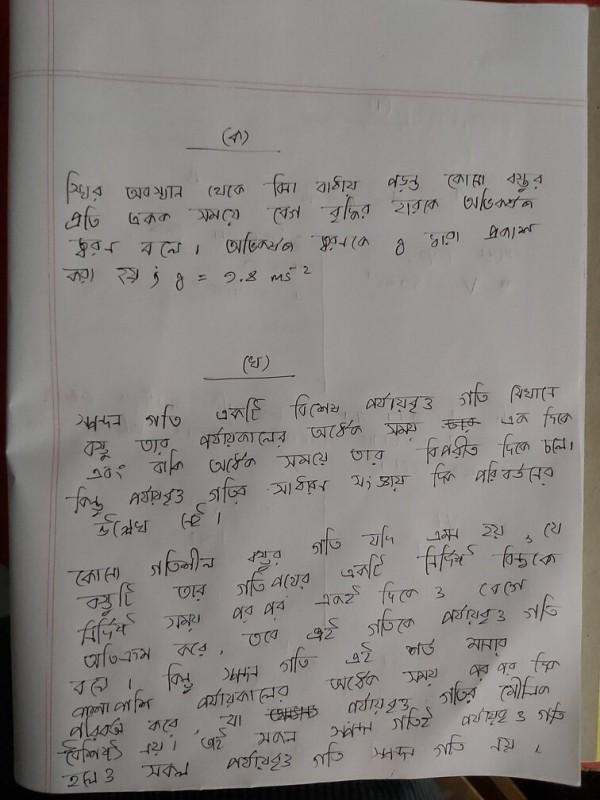 (ক)
স্থির অবস্থান থেকে বিনা বাধায় পড়ন্ত কোনো বস্তুর
প্রতি একক সময়ে বেগ বৃদ্ধির হারকে অভিকর্ষজ
ত্বরণ বলে। অভিকর্ষজ ত্বরণকে g দ্বারা প্রকাশ
করা হয়; g = 9.8 ms⁻²
(খ)
স্পন্দন গতি একটি বিশেষ পর্যায়বৃত্ত গতি যেখানে
বস্তু তার পর্যায়কালের অর্ধেক সময় এক দিকে
এবং বাকি অর্ধেক সময়ে তার বিপরীত দিকে চলে।
কিন্তু পর্যায়বৃত্ত গতির সাধারণ সংজ্ঞায় দিক পরিবর্তনের
উল্লেখ নেই।
কোনো গতিশীল বস্তুর গতি যদি এমন হয়, যে
বস্তুটি তার গতিপথের একটি নির্দিষ্ট বিন্দুকে
নির্দিষ্ট সময় পর পর একই দিকে ও বেগে
অতিক্রম করে, তবে এই গতিকে পর্যায়বৃত্ত গতি
বলে। কিন্তু স্পন্দন গতি এই শর্ত মানার
পাশাপাশি পর্যায়কালের অর্ধেক সময় পর পর দিক
পরিবর্তন করে, যা পর্যায়বৃত্ত গতির মৌলিক
বৈশিষ্ট্য নয়। তাই সকল স্পন্দন গতিই পর্যায়বৃত্ত গতি
হলেও সকল পর্যায়বৃত্ত গতি স্পন্দন গতি নয়।